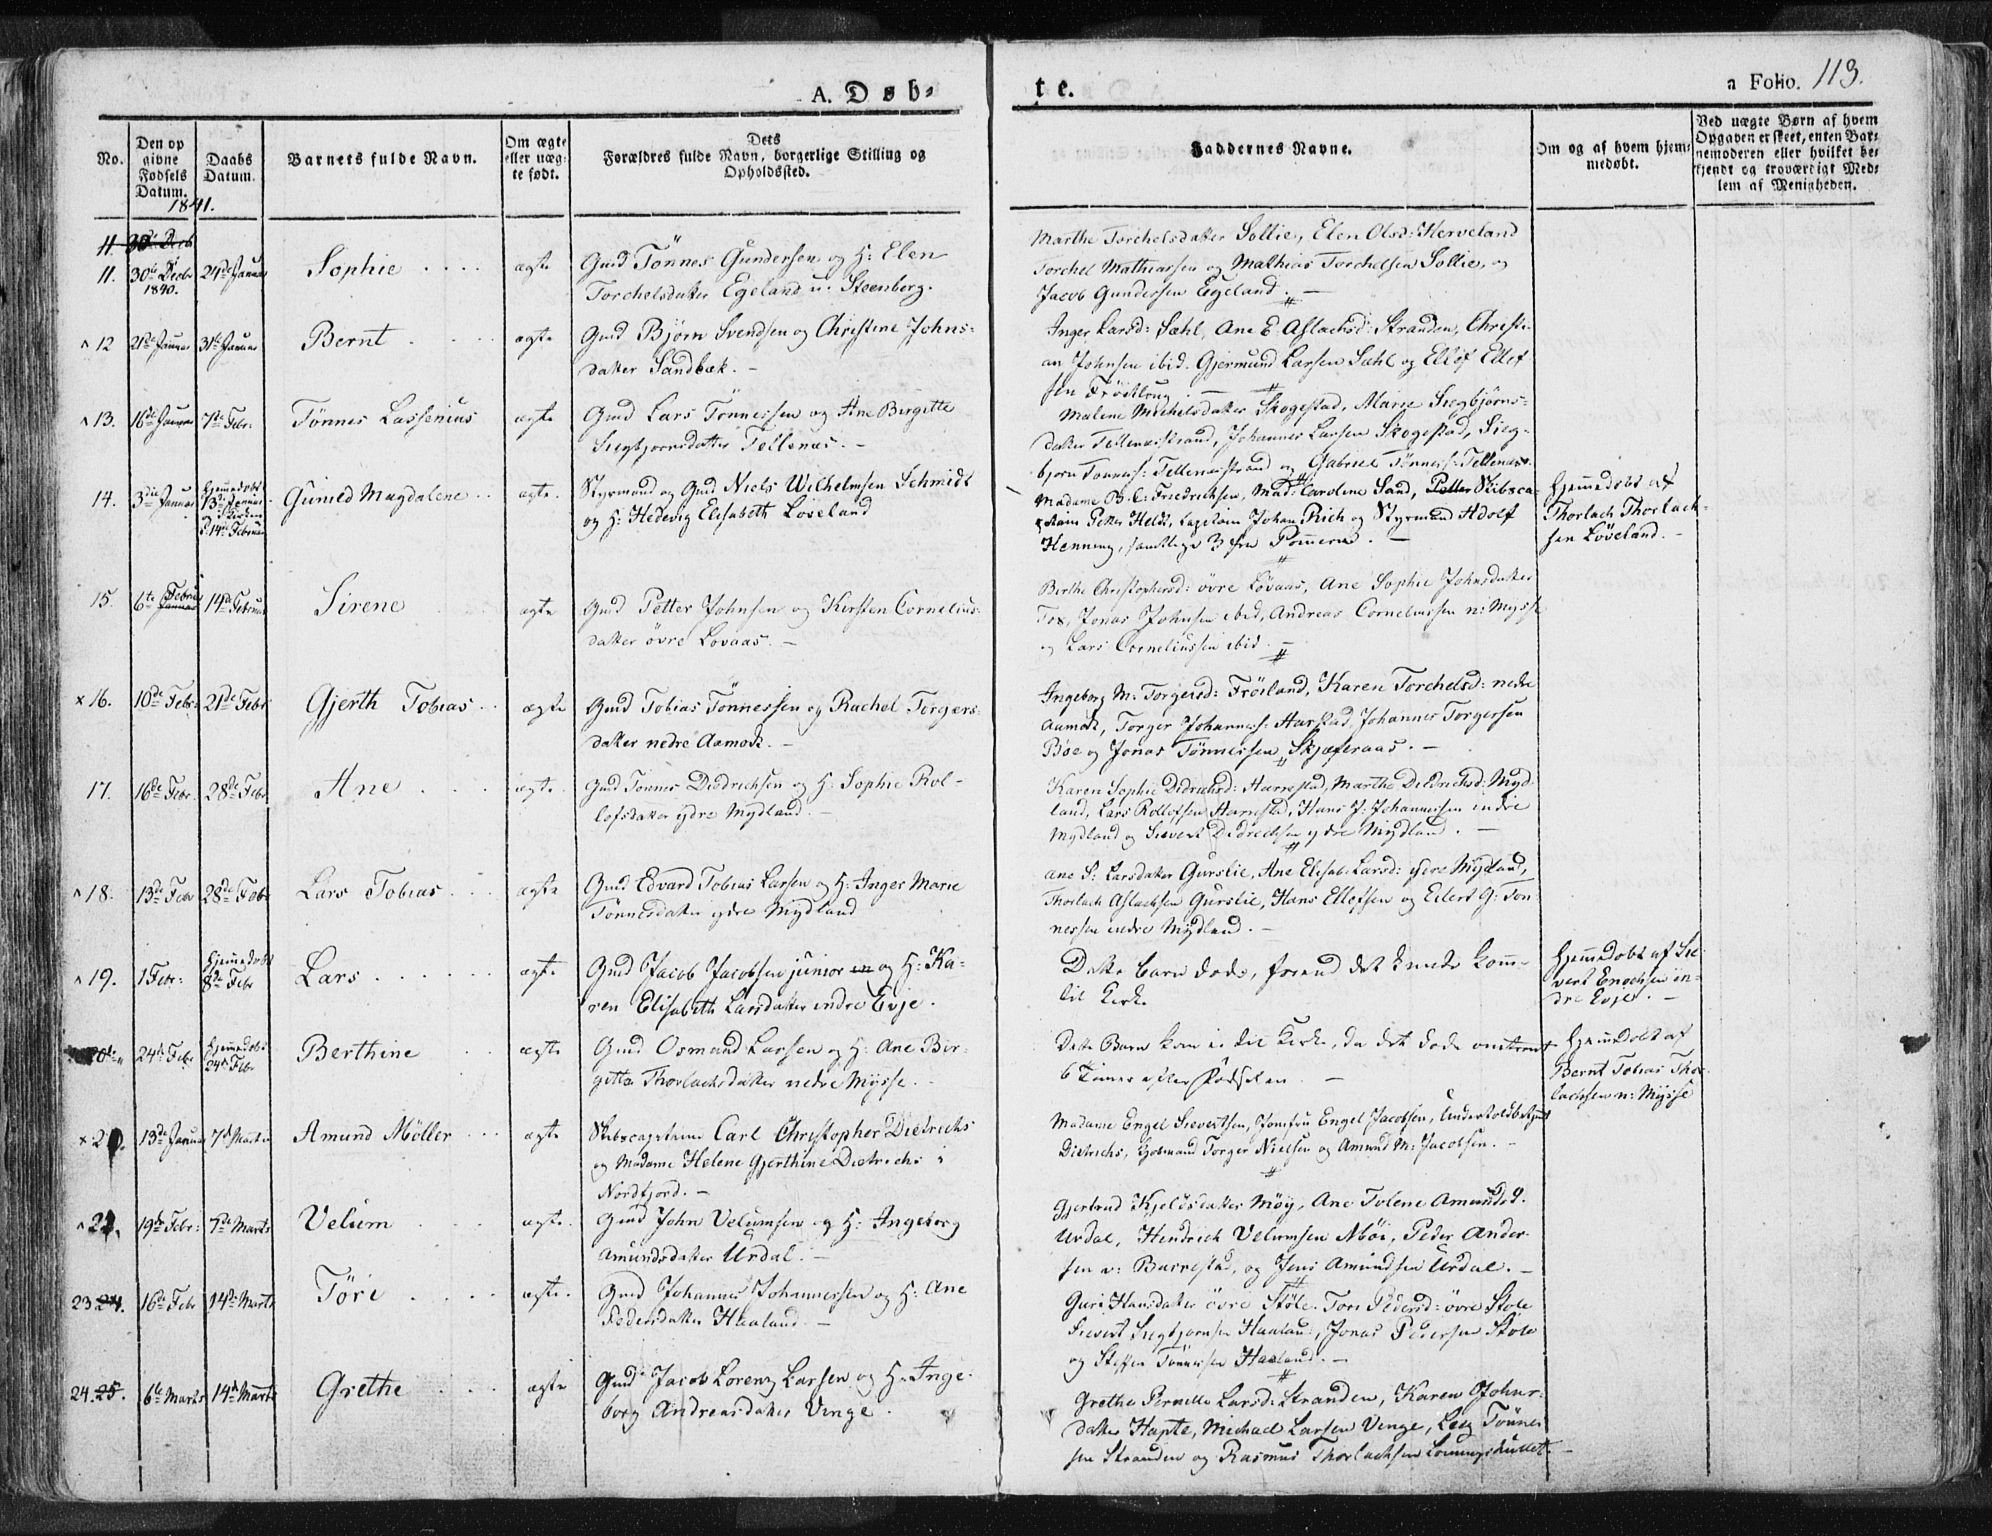 A. Døb-
te.
a Folio. 113.
No.
Den op
givne
Fødsels
Datum.
Daabs
Datum.
Barnets fulde Navn.
Om ægte
eller uæg-
te født.
Dets
Forældres fulde Navn, borgerlige Stilling og
Opholdssted.
Faddernes Navne.
Om og af hvem hjem-
medøbt.
Ved uægte Børn af hvem
Opgaven er skeet, enten Bar-
nemoderen eller hvilket be-
kjendt og troværdigt Med-
lem af Menigheden.
1841.
11. 30te Decb
11. 30te Decbr 1840. 24de Januar Sophie ægte
Gmd Tönnes Gundersen og H: Elen
Torchelsdatter Egeland u: Steenberg.
Marthe Torchelsdatter Sollie, Elen Olsd: Herveland
Torchel Mathiassen og Mathias Torchelsen Sollie, og
Jacob Gundersen Egeland.
12 21de Januar 31te Januar Bernt ægte
Gmd Björn Svendsen og Christine Johns-
datter Sandbæk.
Inger Larsd: Sæhl, Ane E: Aslachsd: Stranden, Christi-
an Johnsen ibid. Gjermund Larsen Sæhl og Ellef Ellef
sen Fröitlog.
13. 16de Januar 7de Febr: Tönnes Lassenius ægte
Gmd Lars Tönnessen og Ane Birgitte
Siegbjørnsdatter Tellenæs.
Malene Michelsdatter Skogestad, Marie Siegbjörns-
datter Tellenæsstrand, Johannes Larsen Skogestad, Sieg-
bjorn Tonnes: Tellenæsstrand og Gabriel Tönnes: Tellenæs.
14. 3die Januar Hjemmedøbt 13de Januar i Kirken d. 14de Februar Gunild Magdalene ægte
Styrmand og Gmd Niels Wilhelmsen Schmidt
og H: Hedevig Elisabeth Löveland
Madame B. C: Friedrichsen, Mad: Caroline Sand, Petter Skibsca-
ptain Petter Heldt, Capitain Johan Rich og Styrmand Adolf
Henning, samtlige 3 fra Pommern.
Hjemmedobt af
Thorlach Thorlach-
sen Löveland.
15. 6te Februar 14de Februar Sirene ægte
Gmd Petter Johnsen og Kirsten Cornelius-
datter övre Lovaas.
Birthe Christophersd: övre Lövaas, Ane Sophie Johnsdatter
Jonas Johnsen ibid, Andreas Corneliussen n: Mysse
og Lars Corneliussen ibid.
16. 10de Febr: 21de Febr Gjerth Tobias ægte
Gmd Tobias Tönnessen og Rachel Torgers-
datter nedre Aamodt.
Ingeborg M: Torgersd: Fröiland, Karen Torchelsd: nedre
Aamodt, Torger Johannes: Harstad, Johannes Torgersen
Böe og Jonas Tönnessen Skjæferaas.
17. 16de Febr. 28de Febr Ane ægte
Gmd Tonnes Didrichsen og H: Sophie Rol-
lofsdatter ydre Mydland.
Karen Sophie Didrichsd: Harrestad, Marthe Didrichsd: Myd-
land, Lars Rollofsen Harrestad, Hans J: Johannessen indre
Mydland og Sievert Didrichsen ydre Mydland.
18. 13de Febr 28de Febr Lars Tobias ægte
Gmd Edvard Tobias Larsen og H: Inger Marie
Tönnesdatter ydre Mydland
Ane S: Larsdatter Gurslie, Ane Elisab: Larsd: ydre Mydland,
Thorlach Aslachsen Gurslie, Hans Ellefsen og Eilert G: Ton
nessen indre Mydland.
19. 1 Febr: Hjemmedobt 8de Febr Lars ægte
Gmd Jacob Jacobsen junior og H: Ka-
ren Elisabeth Larsdatter indre Evje.
Dette Barn døde, forend det kunde komme
til Kirke
Hjemmedobt af Sie-
vert Enochsen in-
dre Evje.
20de 24de Febr Hjemmedobt 24de Febr Berthine ægte
Gmd Osmund Larsen og H: Ane Bir-
gitte Thorlachsdatter nedre Mysse.
Dette Barn kom ei til Kirke, da det døde omtrent
6 Timer efter Fødselen.
Hjemmedobt af
Bernt Tobias Thor-
lachsen n: Mysse
21. 13de Januar 7de Marts Amund Möller ægte
Skibscapitaine Carl Christopher Dietrichs
og Madame Helene Gjerthine Dietrichs i
Nordfjord.
Madame Engel Sievertsen, Jomfru Engel Jacobsen,
Dietrichs, Torger Nielsen og Amund M: Jacobsen.
22. 19de Febr: 7de Marts Velum ægte.
Gmd John Velumsen og H: Ingeborg
Amundsdatter Urdal.
Gjertrud Kjeldsdatter Möy, Ane Tolene Amundsd.
Urdal, Hendrich Velumsen Möi, Peder Ander-
sen n: Barrestad, og Jens Amundsen Urdal.
23. 24. 16de Febr 14de Marts Töri ægte.
Gmd Johannes Johannessen og H: Ane
Pedersdatter Haaland.
Guri Hansdatter övre Stöle. Tori Pedersd: övre Stole
Sievert Siegbjornsen Haaland, Jonas Pedersen Stöle
og Steffen Tönnessen Haaland.
24. 25. 6te Marts 14de Marts Grethe ægte
Gmd Jacob Lorenz Larsen og H: Inge-
borg Andreasdatter Venge.
Grethe Pernille Larsd: Stranden, Karen Johns-
datter Hapte, Michael Larsen Venge, Tönnes
sen Stranden og Rasmus Thorlachsen